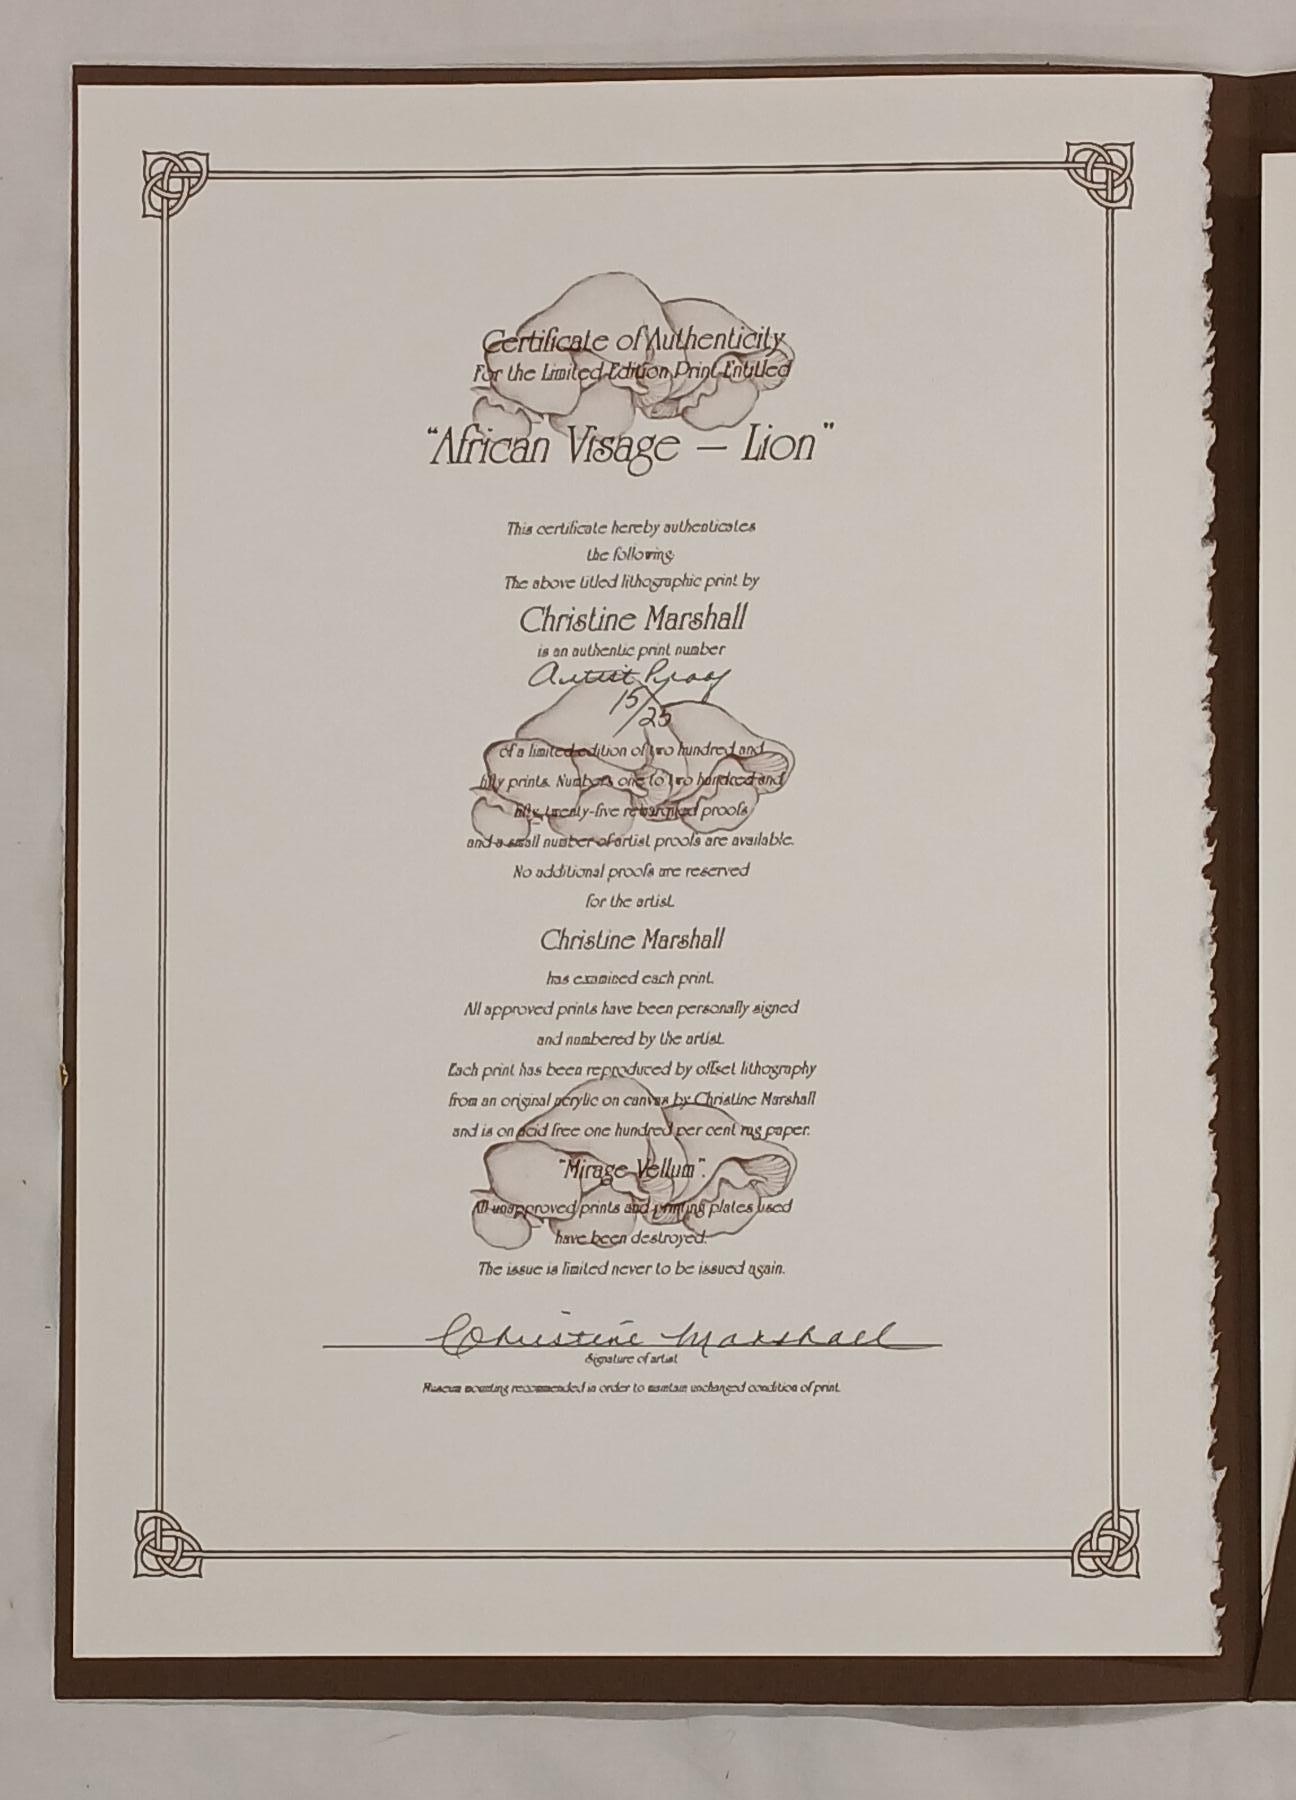 Certificate of Authenticity
For the Limited Edition Print Entitled
"African Visage — Lion"
This certificate hereby authenticates
the following:
The above titled lithographic print by
Christine Marshall
is an authentic print number
Artist Proof
15/25
of a limited edition of two hundred and
fifty prints. Numbers one to two hundred and
fifty, twenty-five remarqued proofs
and a small number of artist proofs are available.
No additional proofs are reserved
for the artist.
Christine Marshall
has examined each print.
All approved prints have been personally signed
and numbered by the artist.
Each print has been reproduced by offset lithography
from an original acrylic on canvas by Christine Marshall
and is on acid free one hundred per cent rag paper.
"Mirage Vellum".
All unapproved prints and printing plates used
have been destroyed.
The issue is limited never to be issued again.
Christine Marshall
Signature of artist
Museum mounting recommended in order to maintain unchanged condition of print.